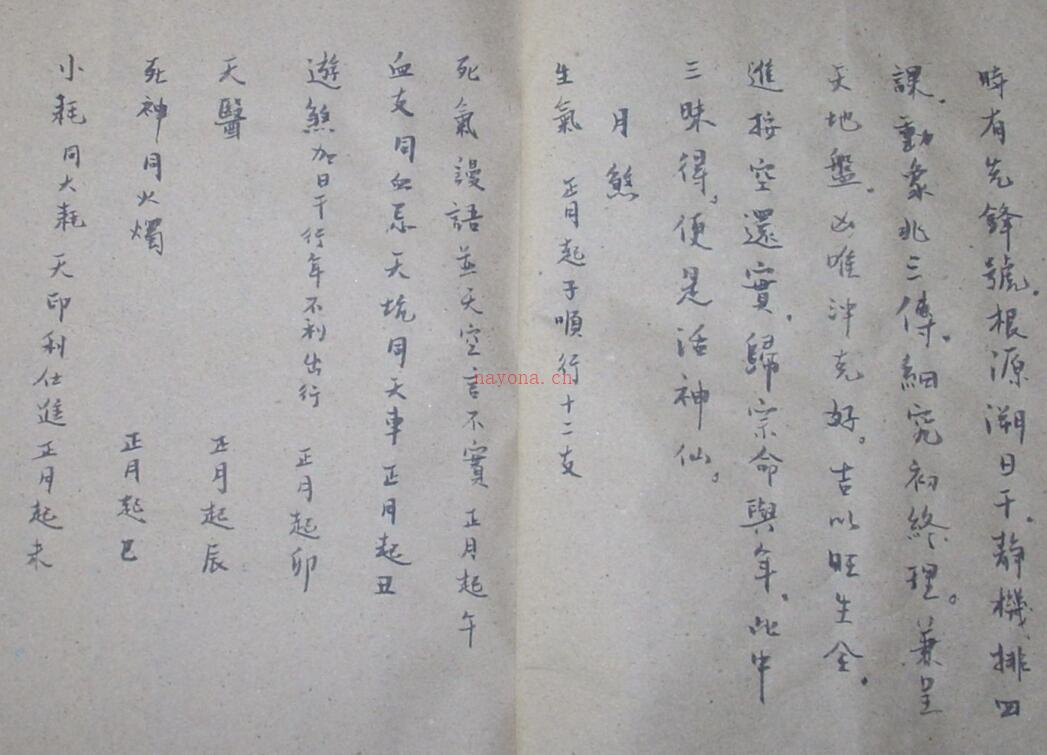 時有先鋒號。根源溯日干。靜機排四
課。動象兆三傳。細究初終理。兼呈
天地盤。凶唯沖克好。吉以旺生全。
進按空還實。歸宗命與年。此中
三昧得。便是活神仙。
月煞
生氣 正月起子順行十二支
死氣謾語並天空言不實 正月起午
血支同血忌天坑同天車正月起丑
遊煞加日干行年不利出行 正月起卯
天醫 正月起辰
死神同火燭 正月起巳
小耗同大耗 天印利仕進正月起未
nayona.cn